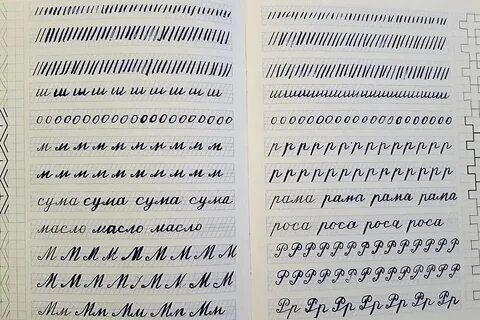 ш ш ш ш ш ш ш ш ш ш
о о о о о о о о о о о о о о о о о о о о
м м м м м м м м м м
м м м м м м м м м м
сума сума сума сума
масло масло масло
М М М М М М М М М
М М М М М М М М М
Мм Мм Мм Мм Мм Мм
ш ш ш ш ш ш ш ш ш ш ш ш ш
о о о о о о о о о о о о о о о о о о о
р р р р р р р р р р р р р р
р р р р р р р р р р р р р р
рама рама рама рама
роса роса роса роса
Р Р Р Р Р Р Р Р Р Р Р Р Р
Р Р Р Р Р Р Р Р Р Р Р Р Р
Рр Рр Рр Рр Рр Рр Рр